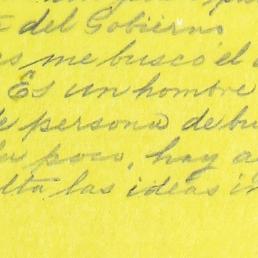 del Gobierno
me buscó el
Es un hombre
persona de bu
poco, hay a
lta las ideas in